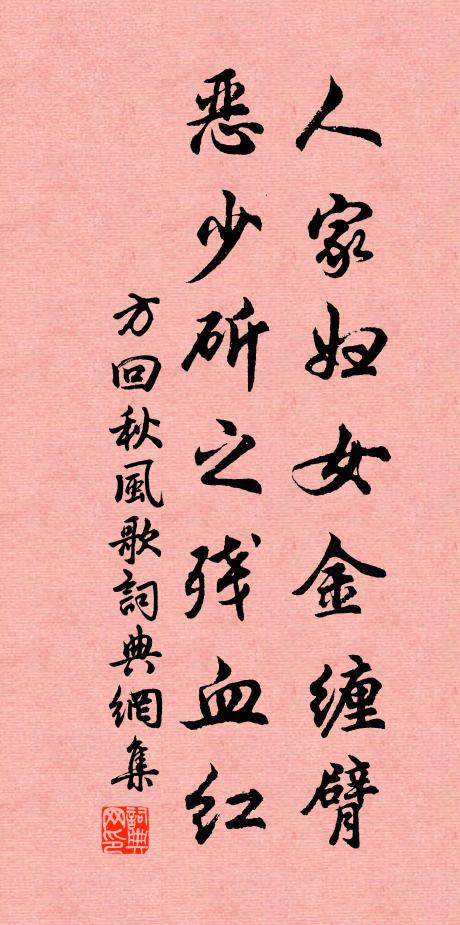 人家妇女金缠臂
恶少斫之残血红
方回秋風歌詞典網集
詞典
网印